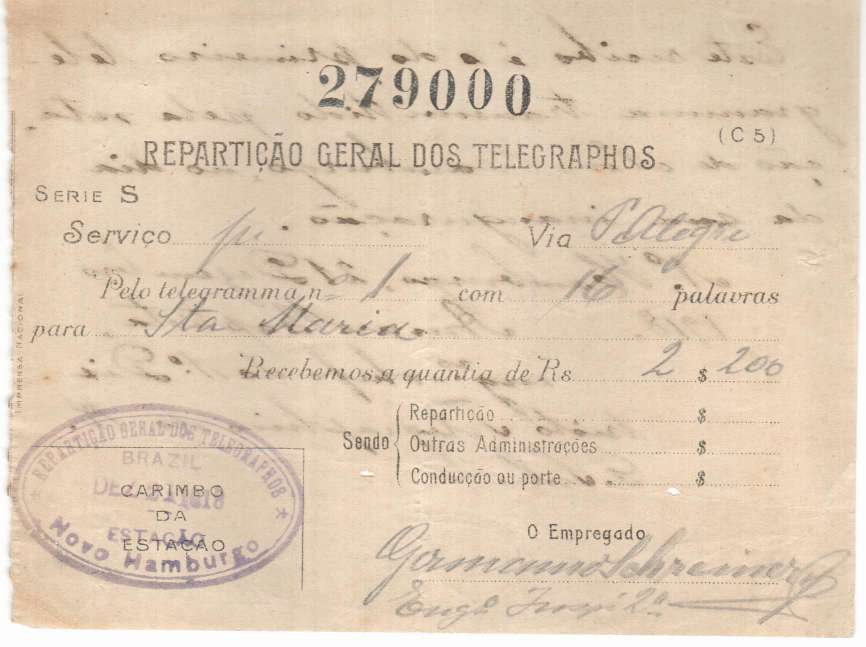 279000
(C 5)
REPARTIÇÃO GERAL DOS TELEGRAPHOS
SERIE S
Serviço Via P. Alegre
Pelo telegramma nº 1 com 16 palavras
para Sta Maria
Recebemos a quantia de Rs 2 $ 200
Sendo
Repartição $
Outras Administrações $
Conducção ou porte $
IMPRENSA NACIONAL
REPARTIÇÃO GERAL DOS TELEGRAPHOS
BRAZIL
DEZ 1918
ESTAÇÃO
Novo Hamburgo
CARIMBO
DA
ESTAÇÃO
O Empregado
Germanno Schreiner
Engº 2ª